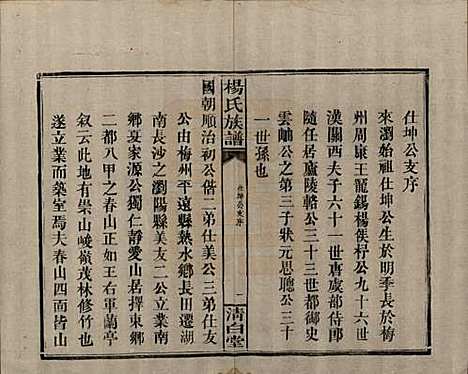 仕坤公支序
來瀏始祖仕坤公生於明季長於梅
州周康王寵錫楊侯杼公九十六世
漢關西夫子六十一世唐虞部侍郎
隨任居廬陵輅公三十三世都御史
雲岫公之第三子狀元思聰公三十
一世孫也
楊氏族譜
仕坤公支序
一
清白堂
國朝順治初公偕二弟仕美公三弟仕
公由梅州平遠縣熱水鄉長田遷湖
南長沙之瀏陽縣美友二公立業南
鄉夏家源公獨仁靜愛山居擇東鄉
二都八甲之春山正如王右軍蘭亭
叙云此地有崇山峻嶺茂林修竹也
遂立業而築室焉夫春山四面皆山